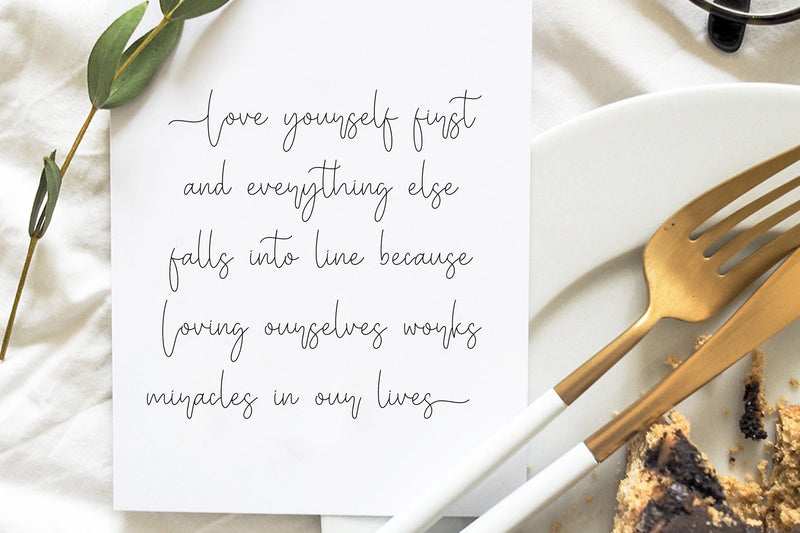 love yourself first
and everything else
falls into line because
loving ourselves works
miracles in our lives